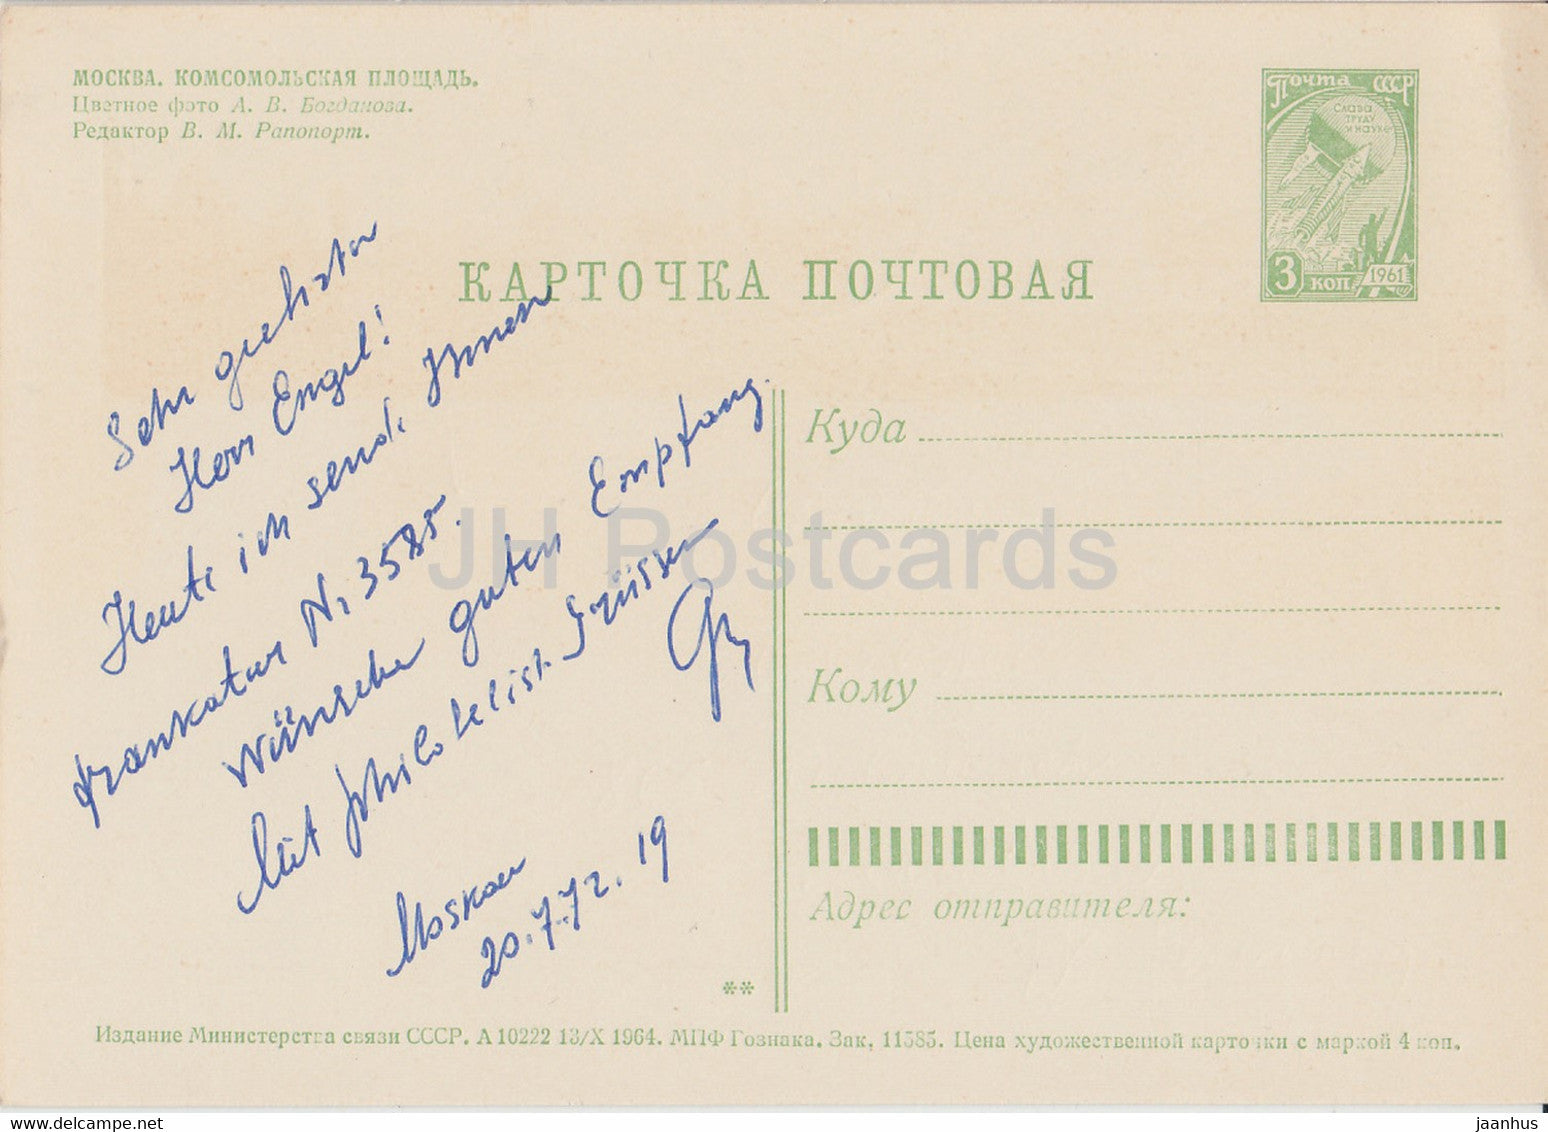 МОСКВА. КОМСОМОЛЬСКАЯ ПЛОЩАДЬ.
Цветное фото А. В. Богданова.
Редактор В. М. Рапопорт.
Почта СССР
Слава
труду
и науке
3 коп.
1961
КАРТОЧКА ПОЧТОВАЯ
Sehr geehrter
Herr Engel!
Heute ich sende Ihnen
frankatur Nr 3585.
Wünsche guten Empfang.
Mit philatelist. Grüssen
Moskau
20.7.72. 19
Куда
Кому
Адрес отправителя:
**
Издание Министерства связи СССР. А 10222 13/X 1964. МПФ Гознака. Зак. 11585. Цена художественной карточки с маркой 4 коп.
JH Postcards
jaanhus